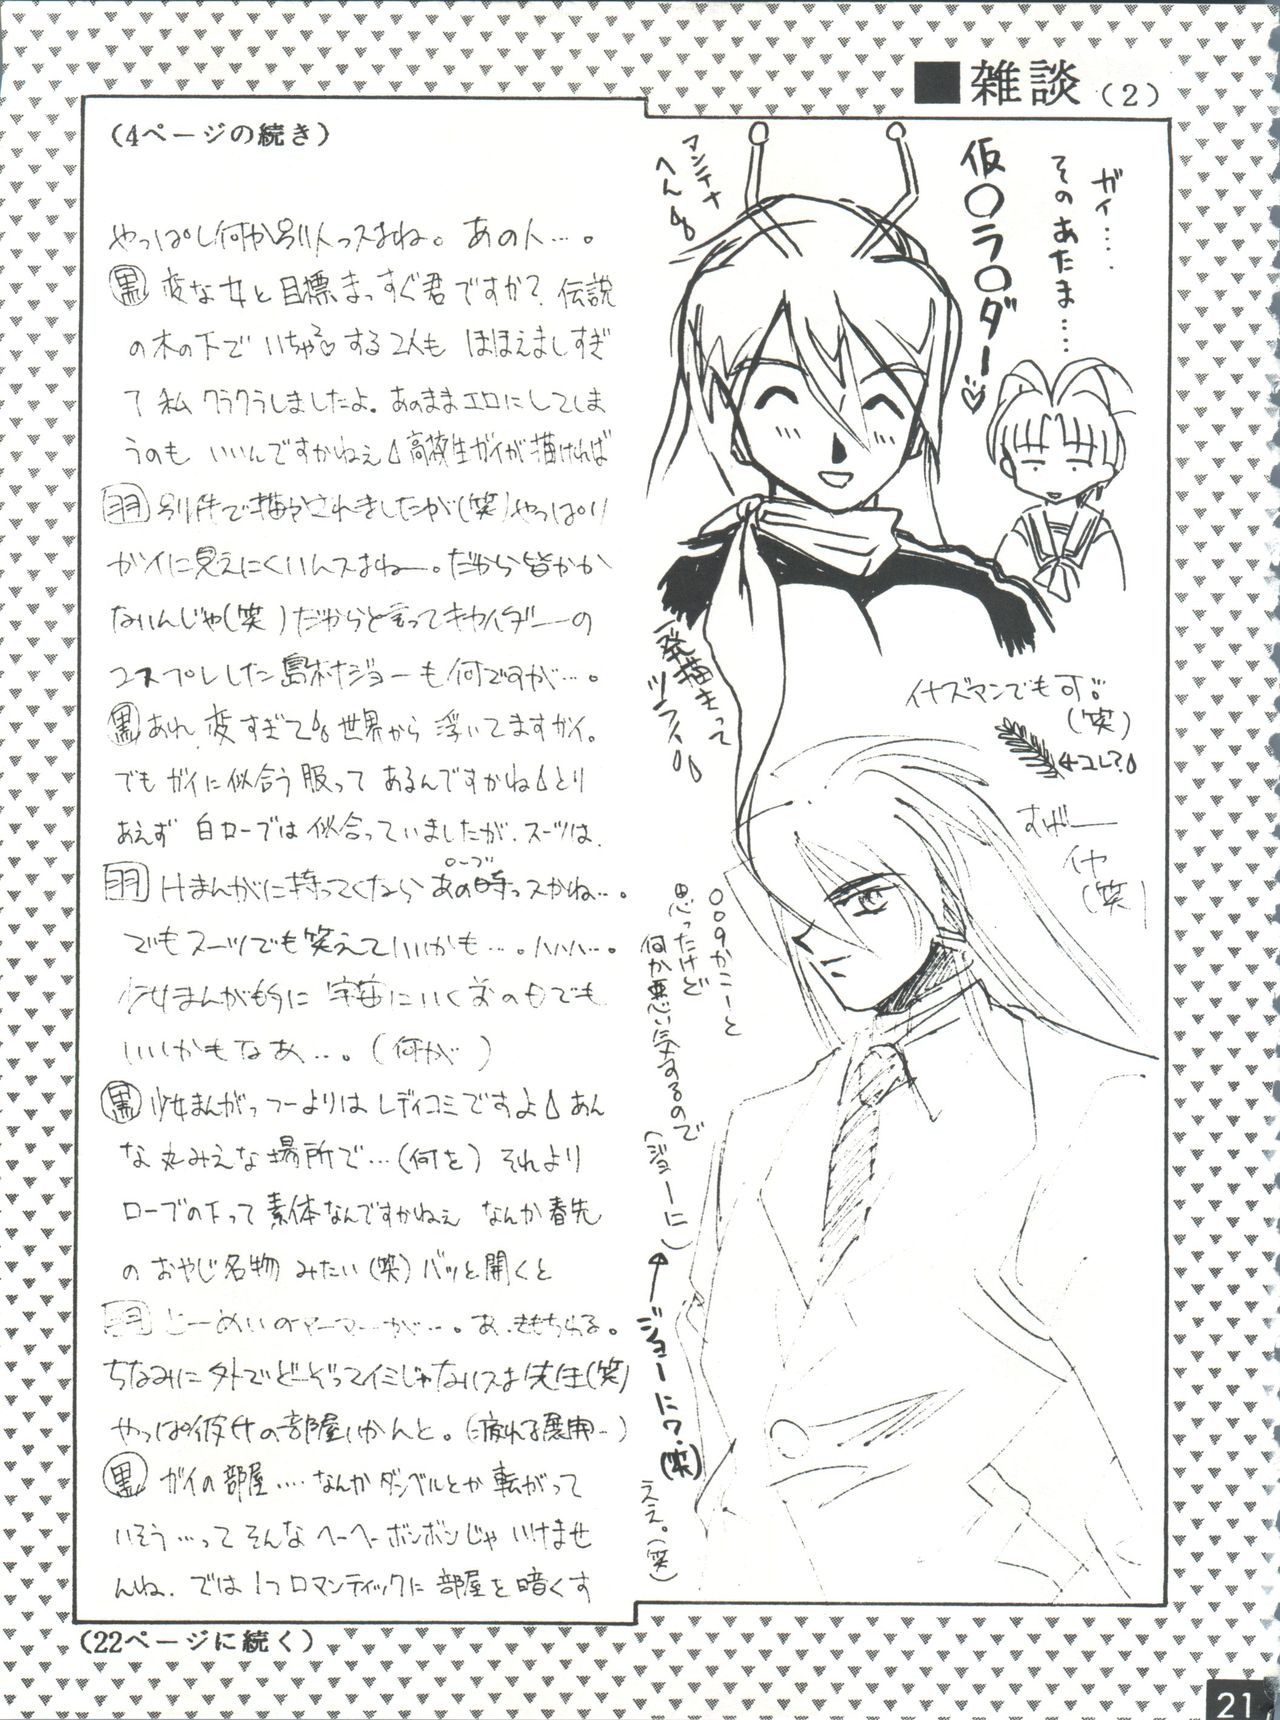 ■雑談（2）
（4ページの続き）
やっぱし何か別人っスよね。あの人…。
黒 変な女と目標まっすぐ君ですか？伝説
の木の下でいちゃ2♡する2人もほほえましすぎ
て私クラクラしましたよ。あのままエロにしてしま
うのもいいんですかねぇ 高校生ガイが描ければ
羽 別件で描かされましたが(笑)やっぱり
ガイに見えにくいんスよねー。だから皆かか
ないんじゃ(笑)だからと言ってキカイダーの
コスプレした島村ジョーも何ですが…。
黒 あれ、変すぎて 世界から浮いてますガイ。
でもガイに似合う服ってあるんですかね とり
あえず白ローブは似合っていましたが、スーツは、
羽 Hまんがに持ってくならあの時っスかね…。
ローブ
でもスーツでも笑えていいかも…。ハハハ…。
少女まんが的に宇宙にいく前のでも
いいかもなあ…。(何が)
黒 少女まんがっつーよりはレディコミですよ あん
な丸みえな場所で…(何を)それより
ローブの下って素体なんですかねぇ なんか春先
のおやじ名物みたい(笑)バッと開くと
羽 とーめいのアーマーが…。あ、きもちわる。
ちなみに外でどーぞってイミじゃないスよ先生(笑)
やっぱ彼女の部屋いかんと。(に疲れる展開…)
黒 ガイの部屋……なんかダンベルとか転がって
いそう…ってそんなヘーヘーボンボンじゃいけませ
んね、では1つロマンティックに部屋を暗くす
（22ページに続く）
ガイ……
そのあたま……
仮〇ラ〇ダー♡
アンテナ
へん
一発描きって
ツライ
イナズマンでも可
(笑)
←コレ？
すげー
イヤ
(笑)
009かこーと
思ったけど
何か悪い気するので
(ジョーに)
↑ジョーに？(笑)
ええ。(笑)
21